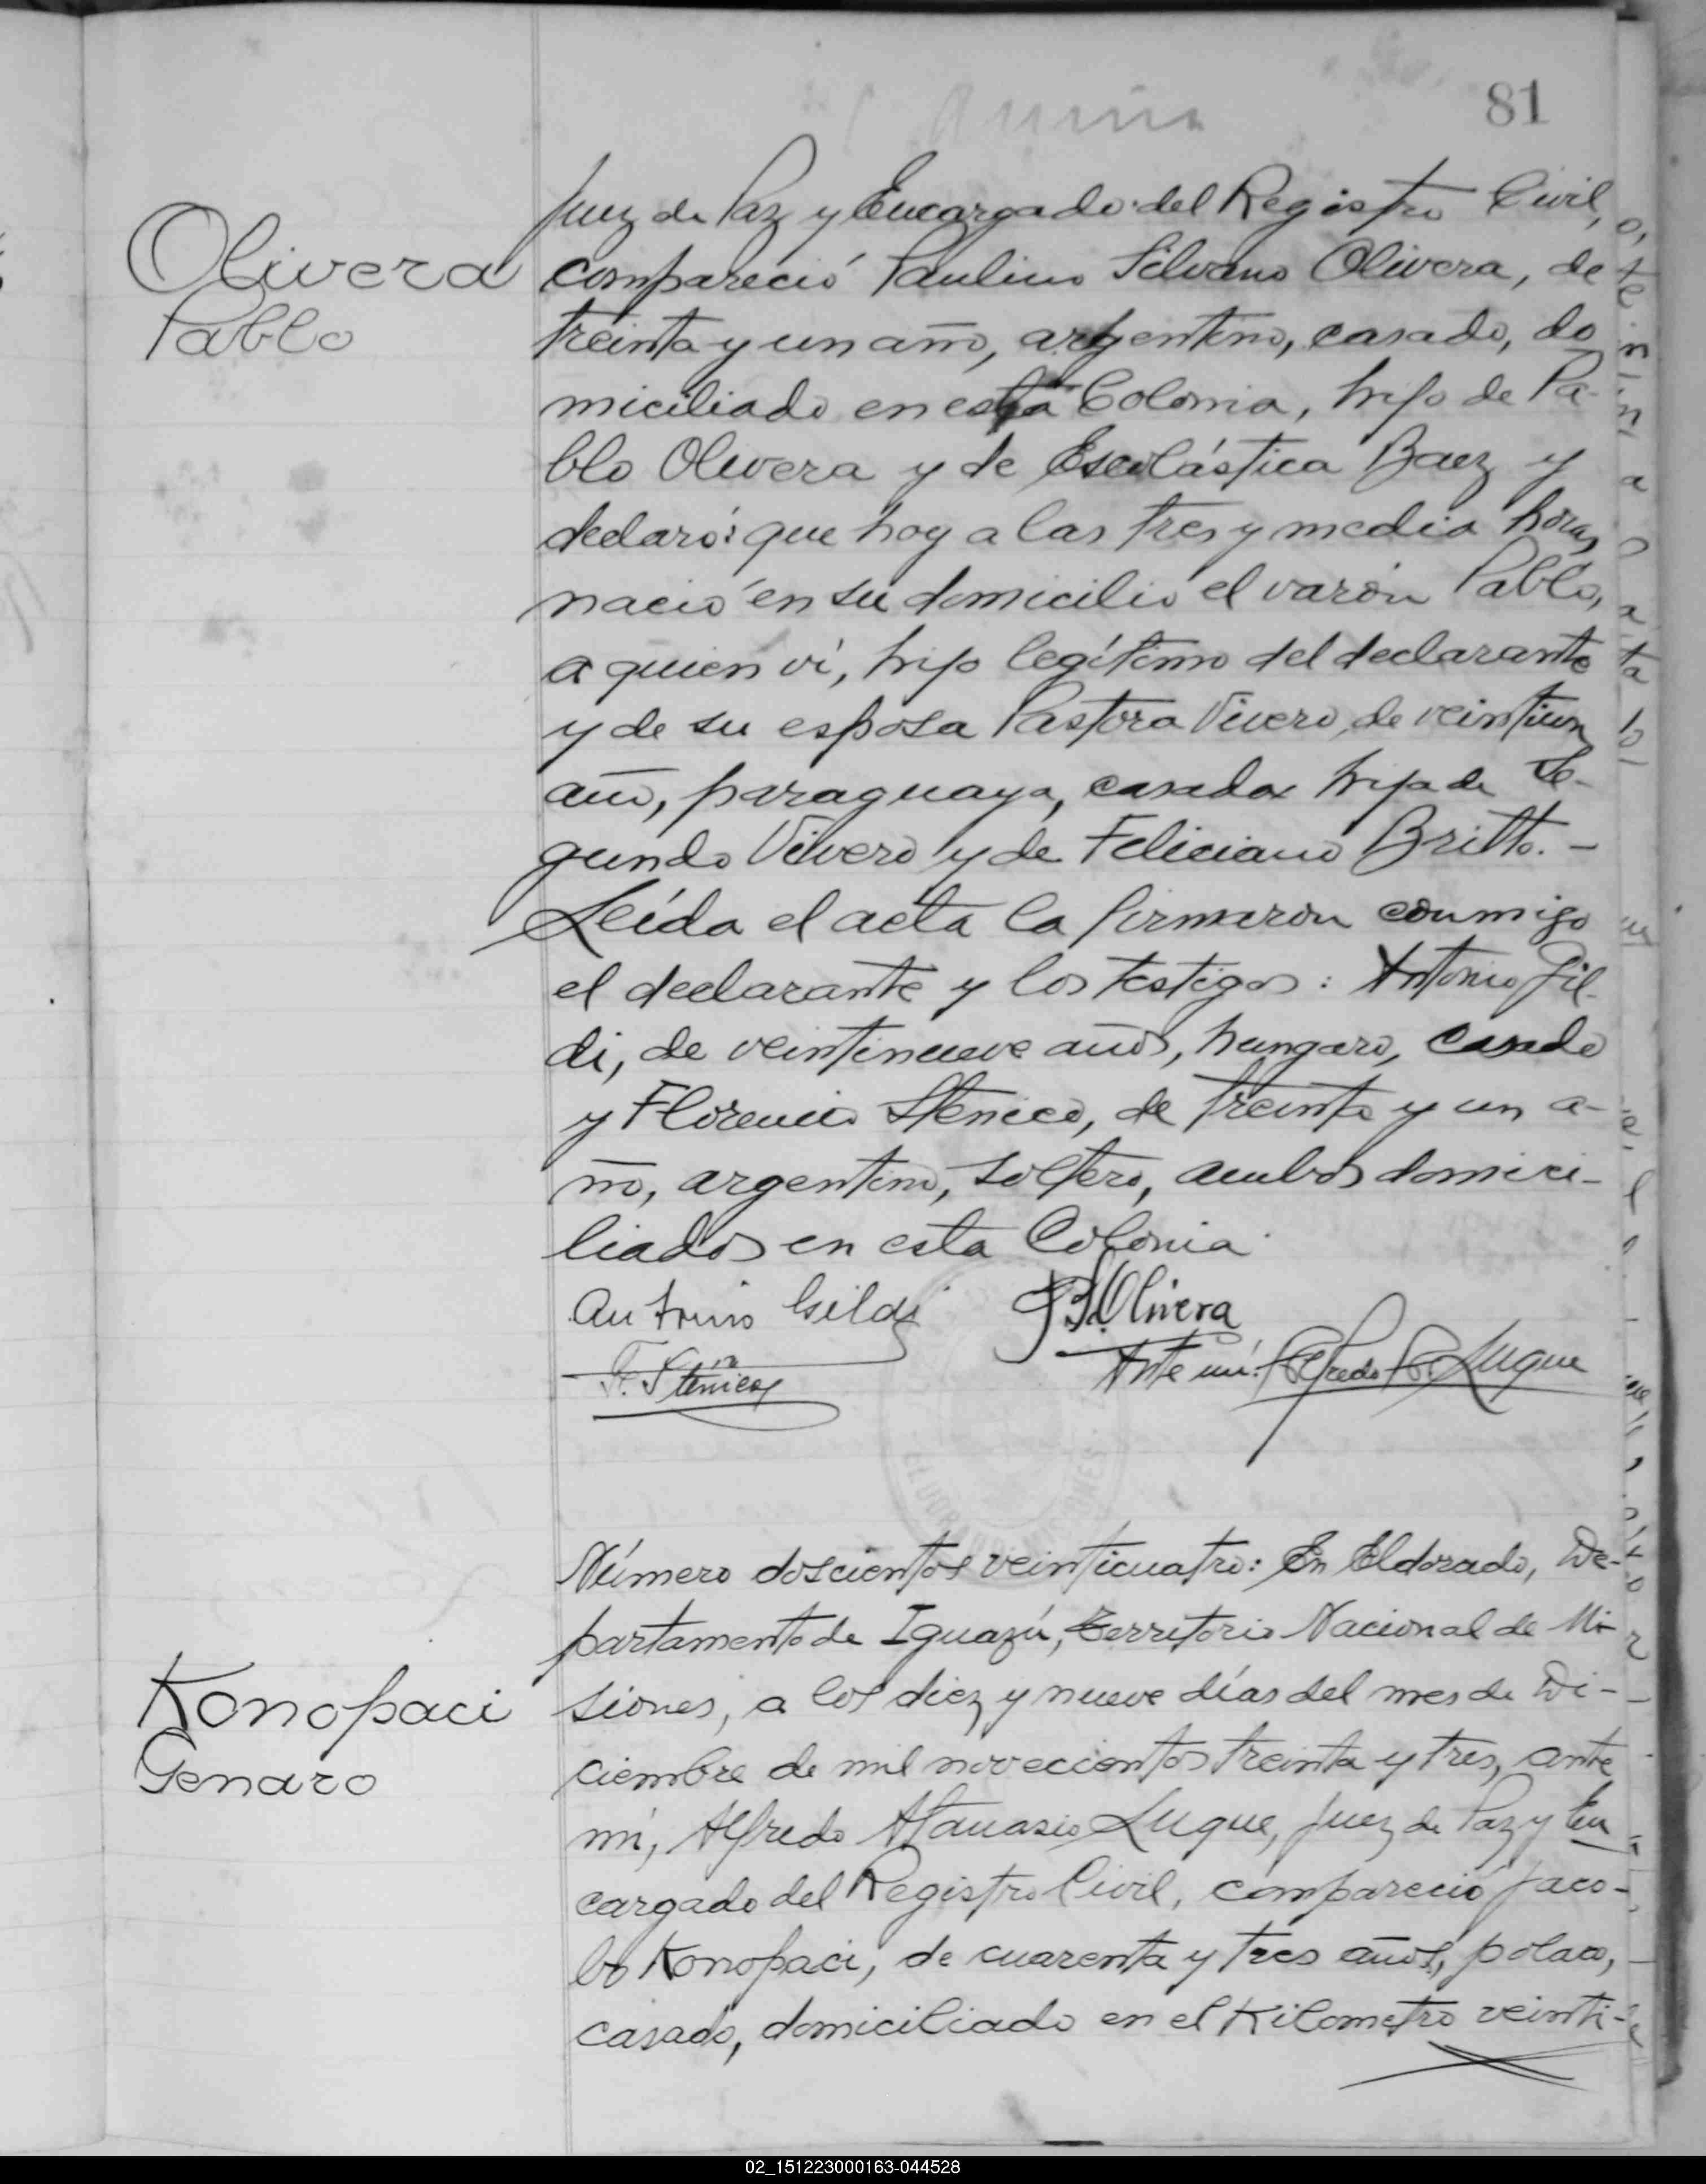 81
Juez de Paz y Encargado del Registro Civil,
Olivera
Pablo
compareció Paulino Silvano Olivera, de
treinta y un año, argentino, casado, do
miciliado en esta Colonia, hijo de Pa-
blo Olivera y de Escolástica Baez y
declaró: que hoy a las tres y media horas
nació en su domicilio el varón Pablo,
a quien ví, hijo legítimo del declarante
y de su esposa Pastora Vivero, de veintiun
año, paraguaya, casada hija de Se-
gundo Vivero y de Feliciano Britto. -
Leída el acta la firmaron conmigo
el declarante y los testigos: Antonio Gil-
di, de veintinueve años, hungaro, casado
y Florencio Stenico, de treinta y un a-
ño, argentino, soltero, ambos domici-
liados en esta Colonia.
Antonio Gildi P.S. Olivera
F. Stenico Ante mí: Alfredo A. Luque
ELDORADO MISIONES
Número doscientos veinticuatro: En Eldorado, De-
partamento de Iguazú, Territorio Nacional de Mi-
Konopaci
Genaro
siones, a los diez y nueve días del mes de Di-
ciembre de mil novecientos treinta y tres, ante
mí, Alfredo Atanasio Luque, Juez de Paz y En
cargado del Registro Civil, compareció Jaco-
bo Konopaci, de cuarenta y tres años, polaco,
casado, domiciliado en el Kilometro veinti-
02_151223000163-044528